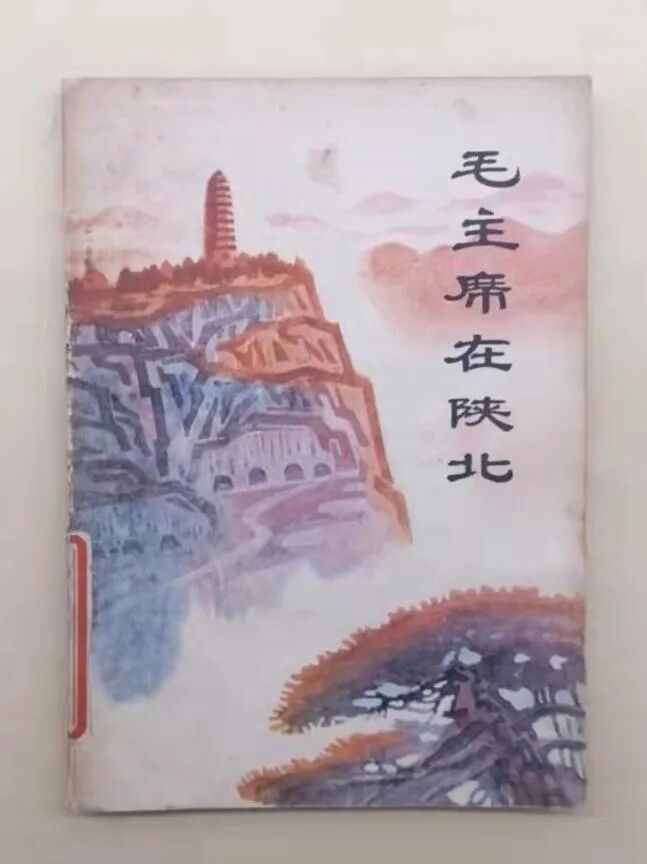 毛主席在陕北